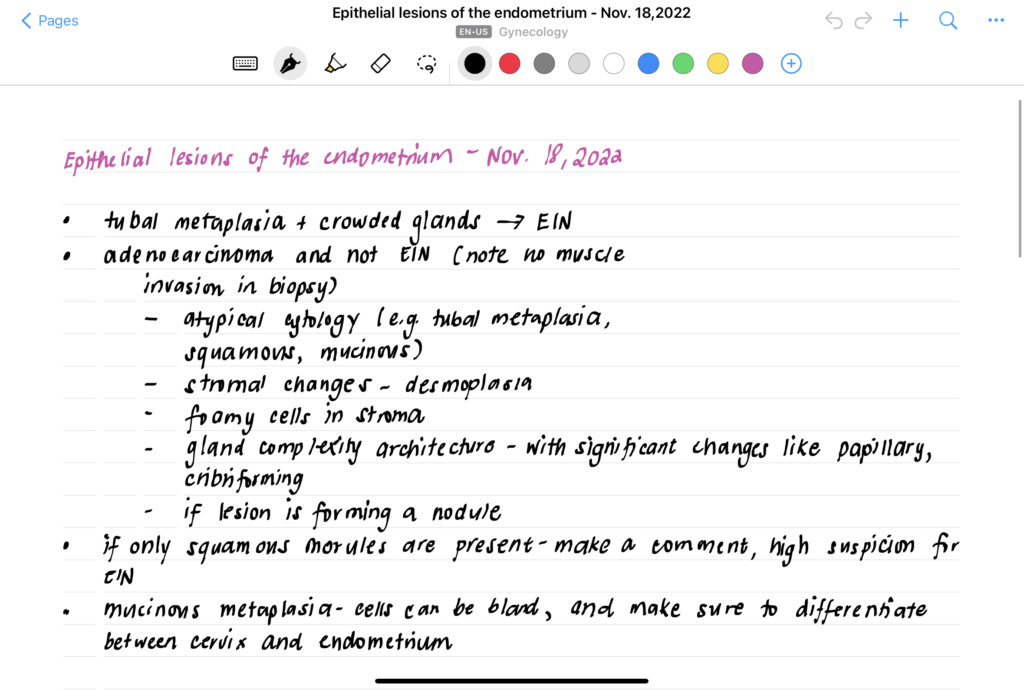 Pages
Epithelial lesions of the endometrium - Nov. 18,2022
EN-US Gynecology
Epithelial lesions of the endometrium - Nov. 18, 2022
• tubal metaplasia + crowded glands → EIN
• adenocarcinoma and not EIN (note no muscle
invasion in biopsy)
- atypical cytology (e.g. tubal metaplasia,
squamous, mucinous)
- stromal changes - desmoplasia
- foamy cells in stroma
- gland complexity architecture - with significant changes like papillary,
cribriforming
- if lesion is forming a nodule
• if only squamous morules are present - make a comment, high suspicion for
EIN
• mucinous metaplasia - cells can be bland, and make sure to differentiate
between cervix and endometrium